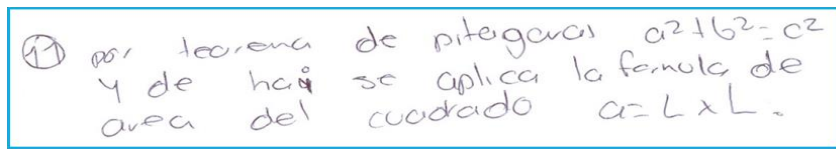 11 por teorema de pitagaras a²+b²=c²
y de hai se aplica la formula de
area del cuadrado a=LxL.